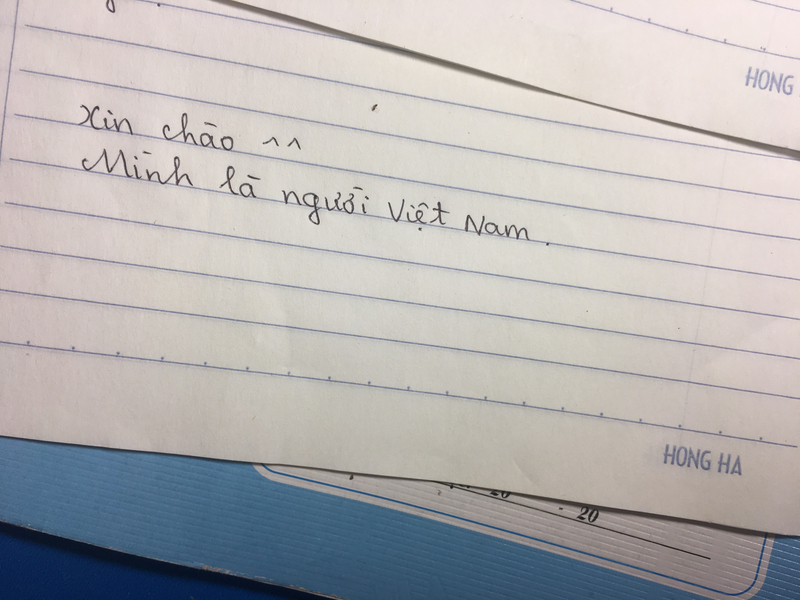 HONG
Xin chào ^^
Mình là người Việt Nam.
HONG HA
20
20